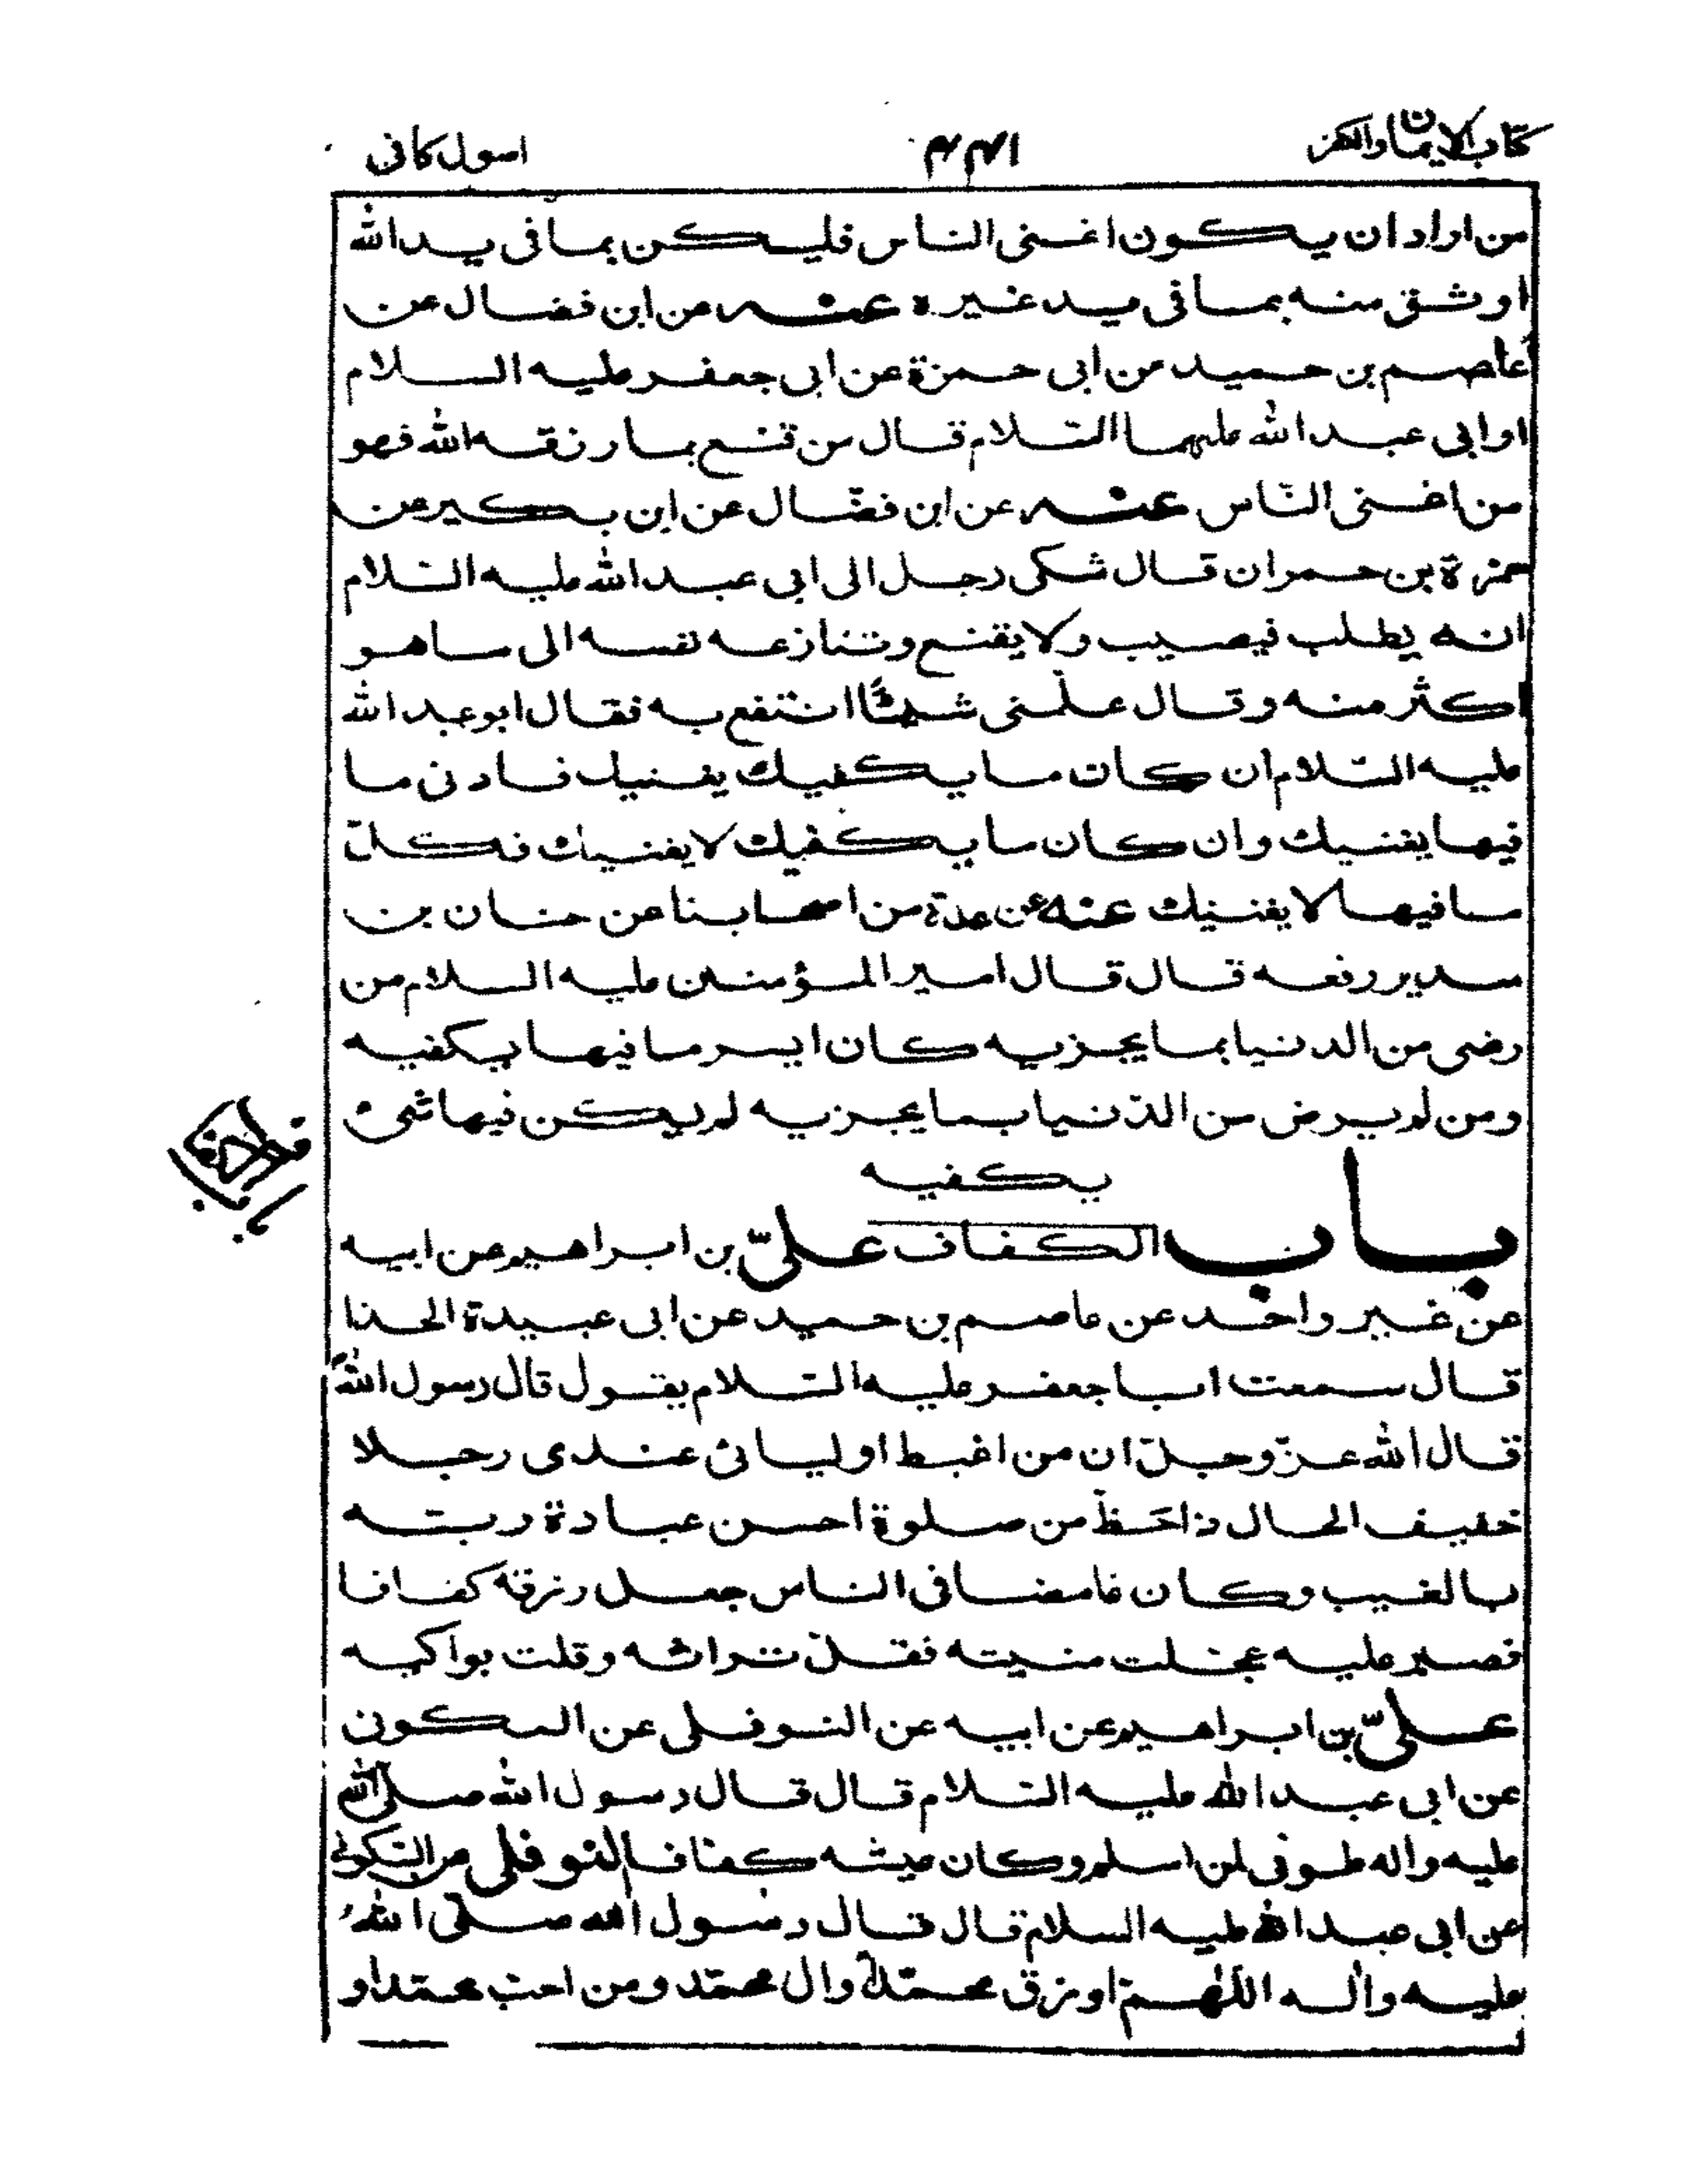 كتاب الايمان والكفر
اصول كافى
من اراد ان يكون اغنى الناس فليكن بما فى يد الله
اوثق منه بما فى يد غيره عنه عن ابن فضال عن
عاصم بن حميد عن ابى حمزة عن ابى جعفر عليه السلام
او ابى عبد الله عليهما السّلام قال من قنع بما رزقه الله فهو
من اغنى النّاس عنه عن ابن فضّال عن ابن بكير عن
حمزة بن حمران قال شكى رجل الى ابى عبد الله عليه السّلام
انه يطلب فيصيب ولا يقنع وتنازعه نفسه الى ما هو
اكثر منه وقال علّمنى شيئًا انتفع به فقال ابو عبد الله
عليه السّلام ان كان ما يكفيك يغنيك فادنى ما
فيها يغنيك وان كان ما يكفيك لا يغنيك فكلّ
ما فيها لا يغنيك عنه عن عدة من اصحابنا عن حنان بن
سدير رفعه قال قال امير المؤمنين عليه السلام من
رضى من الدنيا بما يجزيه كان ايسر ما فيها يكفيه
ومن لم يرض من الدّنيا بما يجزيه لم يكن فيها شئ
يكفيه
باب الكفاف علىّ بن ابراهيم عن ابيه
عن غير واحد عن عاصم بن حميد عن ابى عبيدة الحذا
قال سمعت ابا جعفر عليه السّلام يقول قال رسول الله
قال الله عزّ وجلّ ان من اغبط اوليائى عندى رجلا
خفيف الحال ذا حَظّ من صلوة احسن عبادة ربّه
بالغيب وكان غامضا فى الناس جعل رزقه كفافا
فصبر عليه عجّلت منيته فقلّ تراثه وقلت بواكيه
علىّ بن ابراهيم عن ابيه عن النوفلى عن السكونى
عن ابى عبد الله عليه السّلام قال قال رسول الله صلّى الله
عليه واله طوبى لمن اسلم وكان عيشه كفافا النوفلى عن السّكونى
عن ابى عبد الله عليه السلام قال قال رسول الله صلّى الله
عليه واله اللّهمّ ارزق محمّدًا وال محمّد ومن احبّ محمّدا و